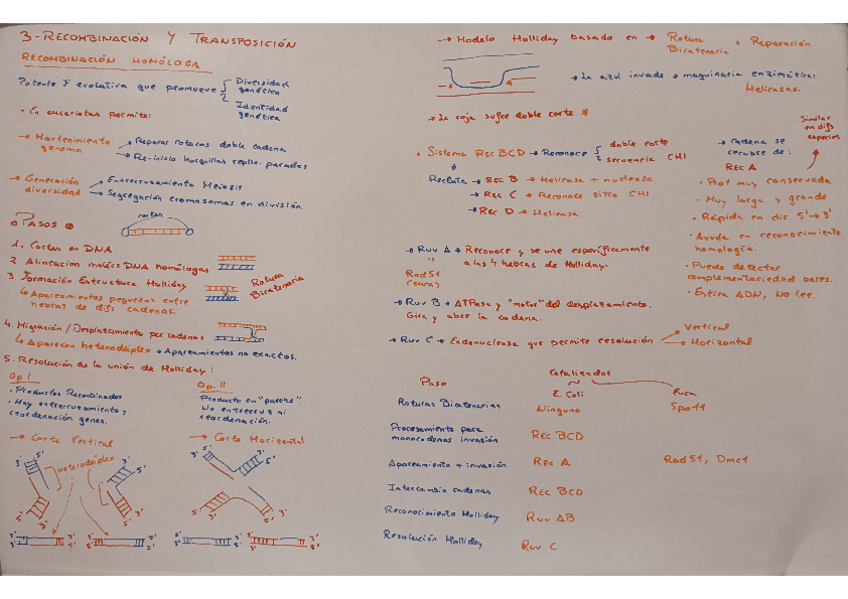 3-RECOMBINACIÓN Y TRANSPOSICIÓN
RECOMBINACIÓN HOMÓLOGA
Potente F evolutiva que promueve
Diversidad genética
Identidad genética
• En eucariotas permite:
→ Mantenimiento genoma
→ Reparar roturas doble cadena
→ Re-inicio horquillas replic. paradas
→ Generación diversidad
Entrecruzamiento Meiosis
Segregación cromosomas en división.
PASOS
cortes
1. Cortes en DNA
2 Alineación moléc DNA homólogas
3 Formación Estructura Holliday
↳ Apareamientos pequeños entre hebras de difs cadenas.
Rotura Bicatenaria
4. Migración / Desplazamiento por cadenas
↳ Aparecen heterodúplex → Apareamientos no exactos.
5. Resolución de la unión de Holliday:
Op I
• Productos Recombinados
• Hay entrecruzamiento y reordenación genes.
Op. II
Producto en "parche":
No entrecruz ni reordenación.
→ Corte Vertical
→ Corte Horizontal
Heterodúplex
3' 5' 5' 3'
→ Modelo Holliday basado en → Rotura Bicatenaria + Reparación
→ La azul invade → maquinaria enzimática: Helicasas.
→ La roja sufre doble corte *
• Sistema Rec BCD → Reconoce
doble corte
secuencia CHI
Recluta → Rec B → Helicasa + nucleasa
→ Rec C → Reconoce sitio CHI
→ Rec D → Helicasa
Similar en difs especies
→ cadena se recubre de:
REC A
• Prot muy conservada
• Muy larga y grande
• Rápida en dir 5'→3'
• Ayuda en reconocimiento homología.
• Puede detectar complementariedad bases.
• Estira ADN, no lee.
→ Ruv A → Reconoce y se une específicamente a las 4 hebras de Holliday.
Rad51 (euca)
→ Ruv B → ATPasa y "motor" del desplazamiento. Gira y abre la cadena.
→ Ruv C → Endonucleasa que permite resolución
→ Vertical
→ Horizontal
Catalizador
Paso
E. Coli
Euca
Roturas Bicatenarias
Ninguno
Spo11
Procesamiento para monocadenas invasión
Rec BCD
Apareamiento + invasión
Rec A
Rad 51, Dmc1
Intercambio cadenas
Rec BCD
Reconocimiento Holliday
Ruv AB
Resolución Holliday
Ruv C